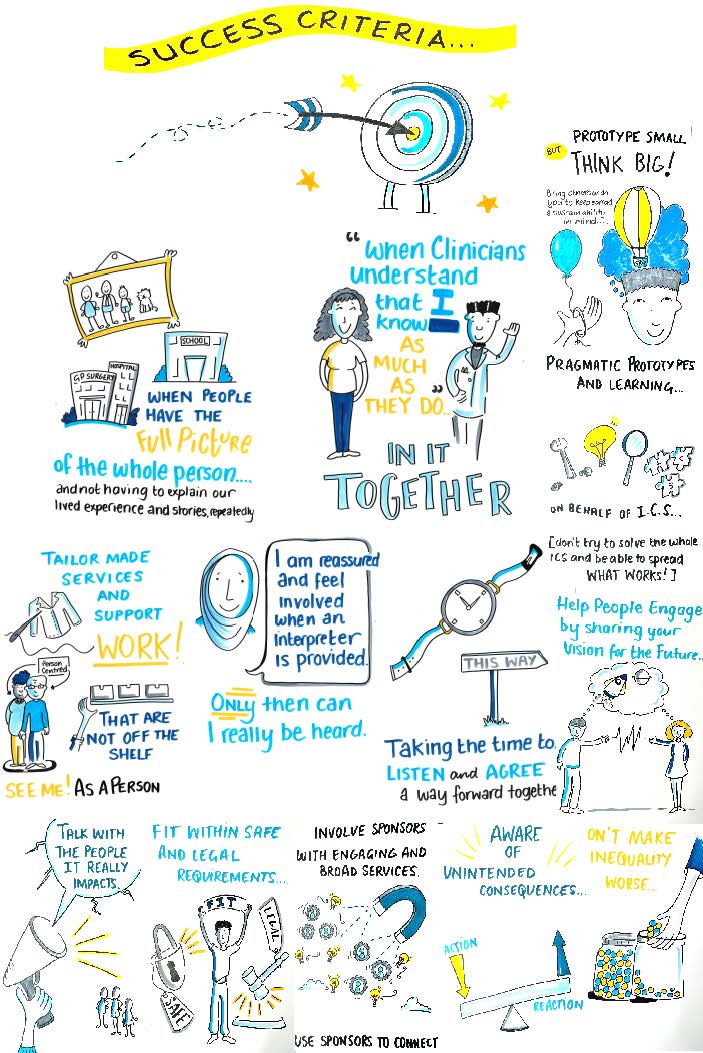 SUCCESS CRITERIA...
BUT
PROTOTYPE SMALL
THINK BIG!
in mind...
PRAGMATIC PROTOTYPES
AND LEARNING...
ON BEHALF OF I.C.S...
[don't try to solve the whole
ICS and be able to spread
WHAT WORKS!]
Help People Engage
by sharing your
Vision for the Future..
"When Clinicians
understand
that I
know
AS
MUCH
AS
THEY DO.."
IN IT
TOGETHER
SCHOOL
HOSPITAL
GP SURGERY
WHEN PEOPLE
HAVE THE
Full Picture
of the whole person....
and not having to explain our
lived experience and stories, repeatedly
TAILOR MADE
SERVICES
AND
SUPPORT
WORK!
Person
Centred.
THAT ARE
NOT OFF THE
SHELF
SEE ME! AS A PERSON
I am reassured
and feel
involved
when an
interpreter
is provided.
ONLY then can
I really be heard.
THIS WAY
Taking the time to
LISTEN and AGREE
a way forward togethe
TALK WITH
THE PEOPLE
IT REALLY
IMPACTS.
FIT WITHIN SAFE
AND LEGAL
REQUIRMENTS...
FIT
LEGAL
SAFE
INVOLVE SPONSORS
WITH ENGAGING AND
BROAD SERVICES.
USE SPONSORS TO CONNECT
AWARE
OF
UNINTENDED
CONSEQUENCES...
ACTION
REACTION
ON'T MAKE
INEQUALITY
WORSE...